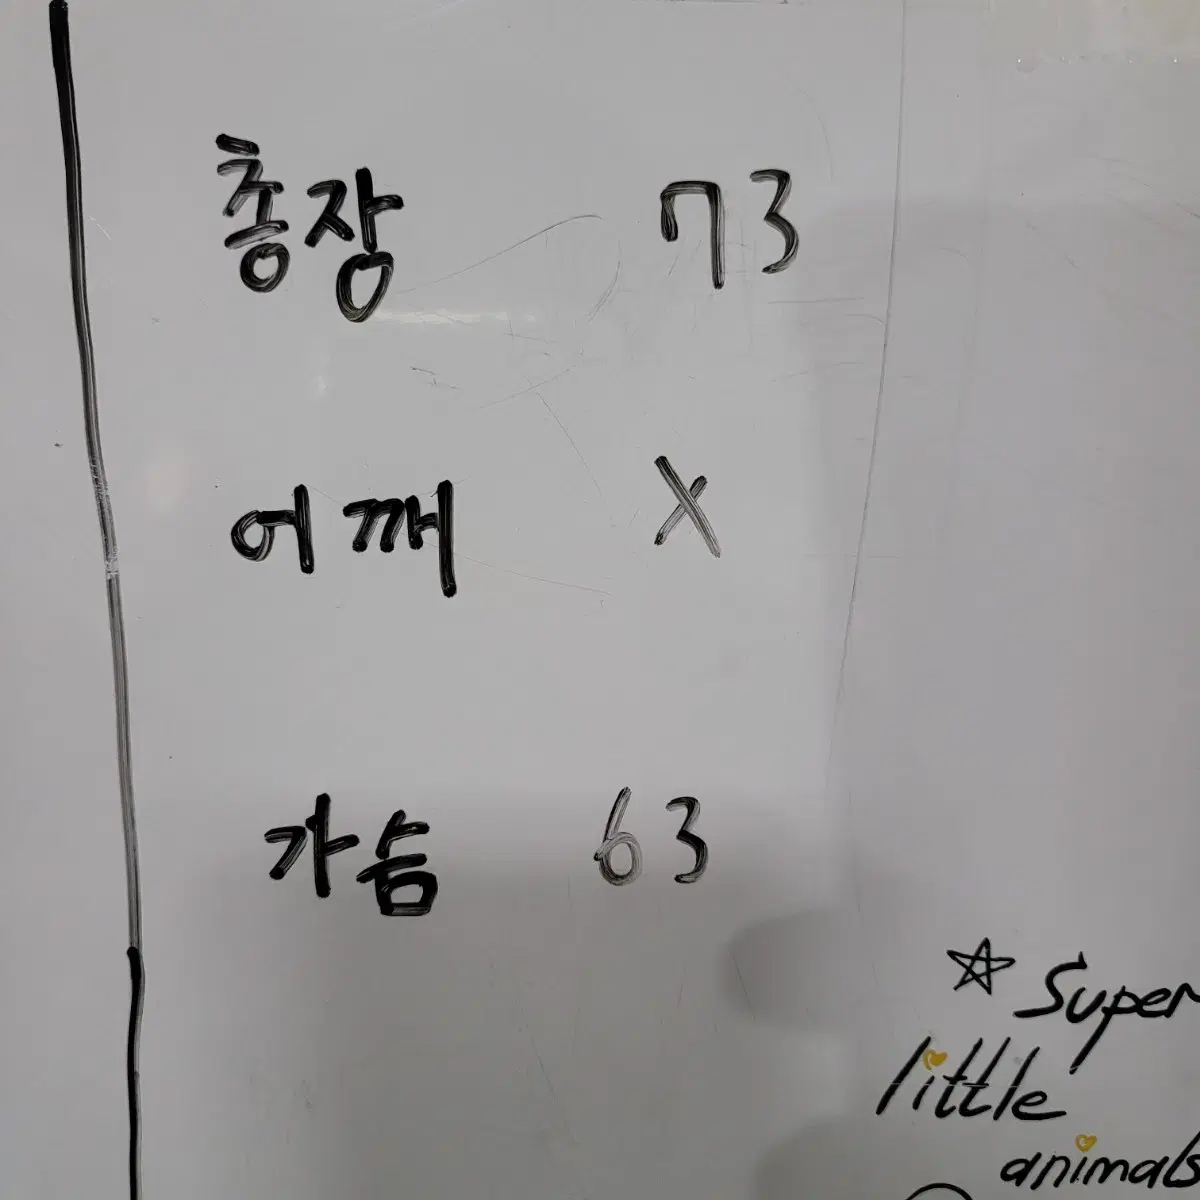 총장 73
어깨 X
가슴 63
☆ Super
little
animals